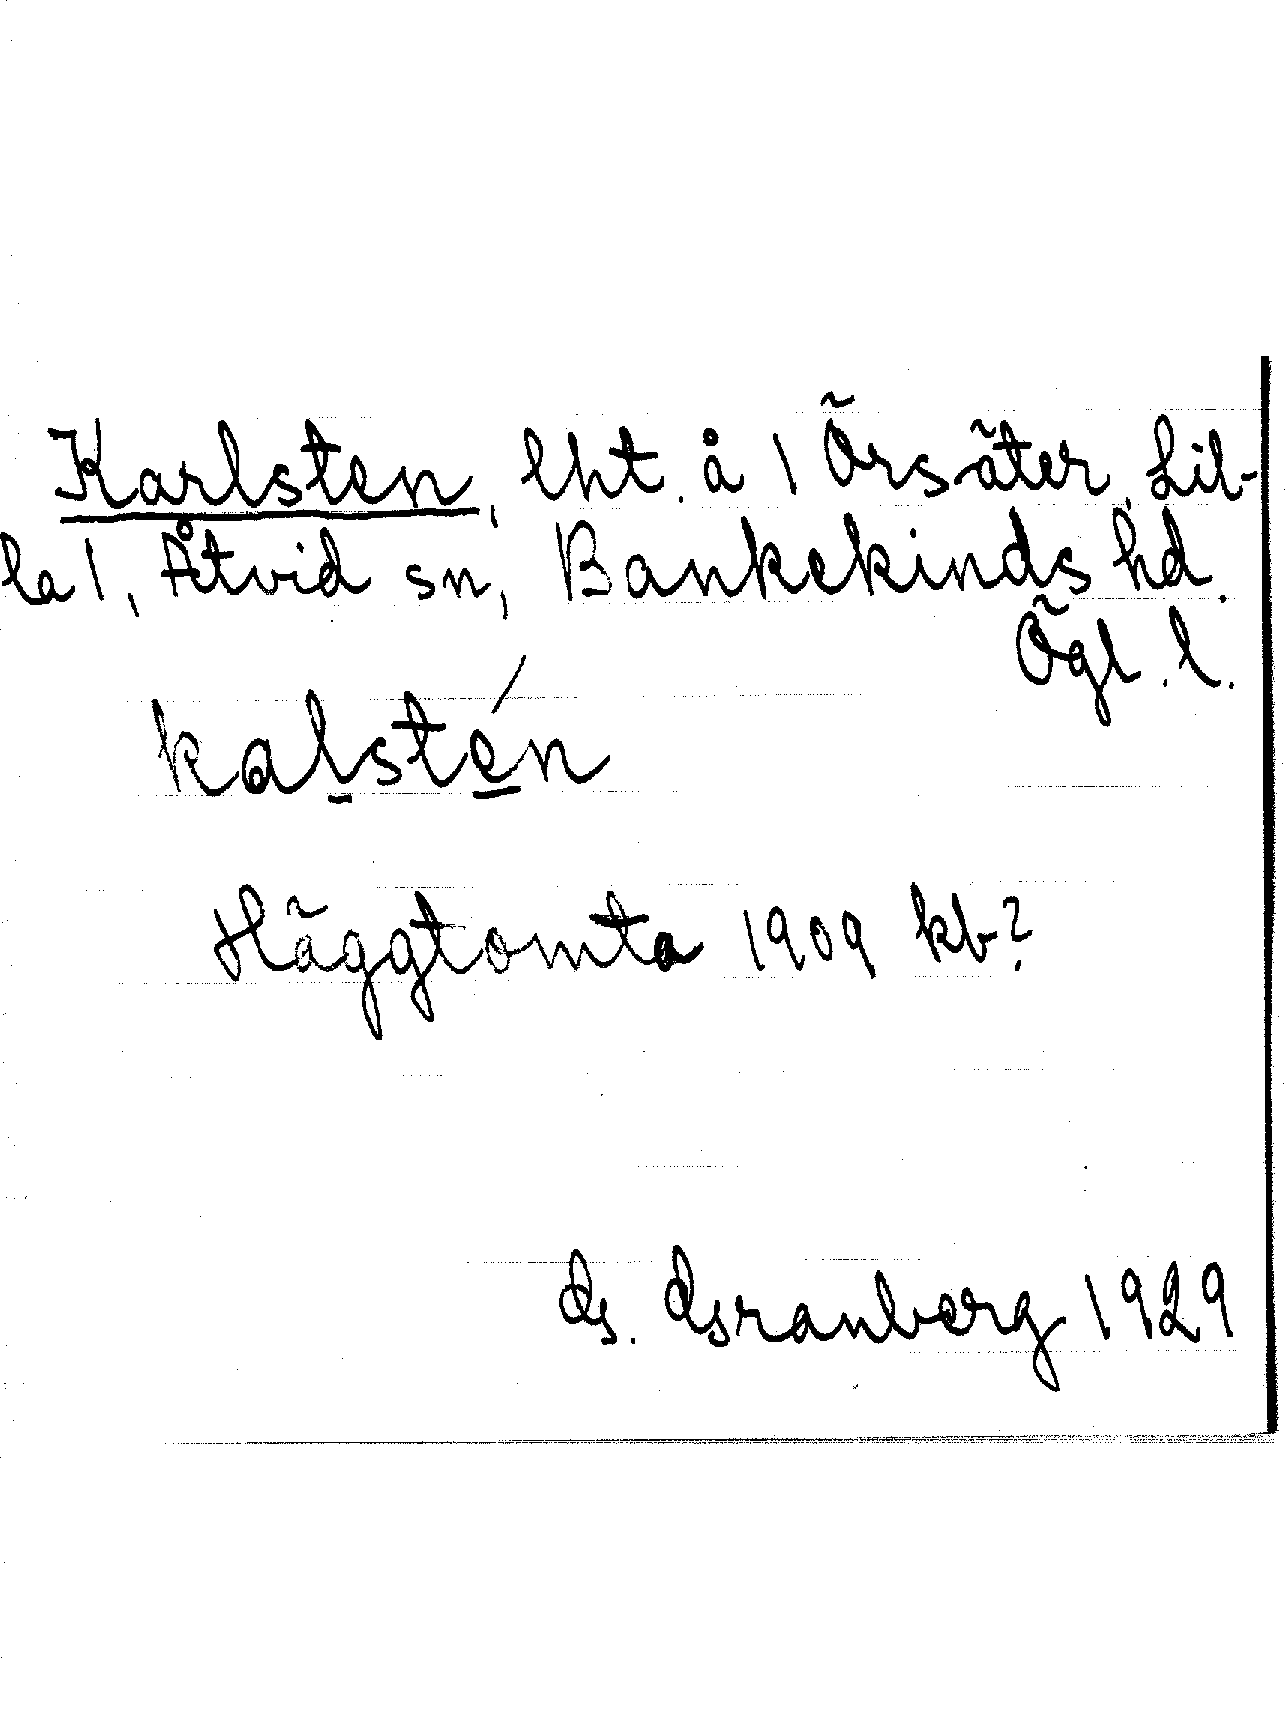 Karlsten, lht. å 1 Örsäter, Lil-
la 1, Åtvid sn, Bankekinds hd.
Ögl. l.
kalstén
Häggtomta 1909 kb?
G. Granberg 1929